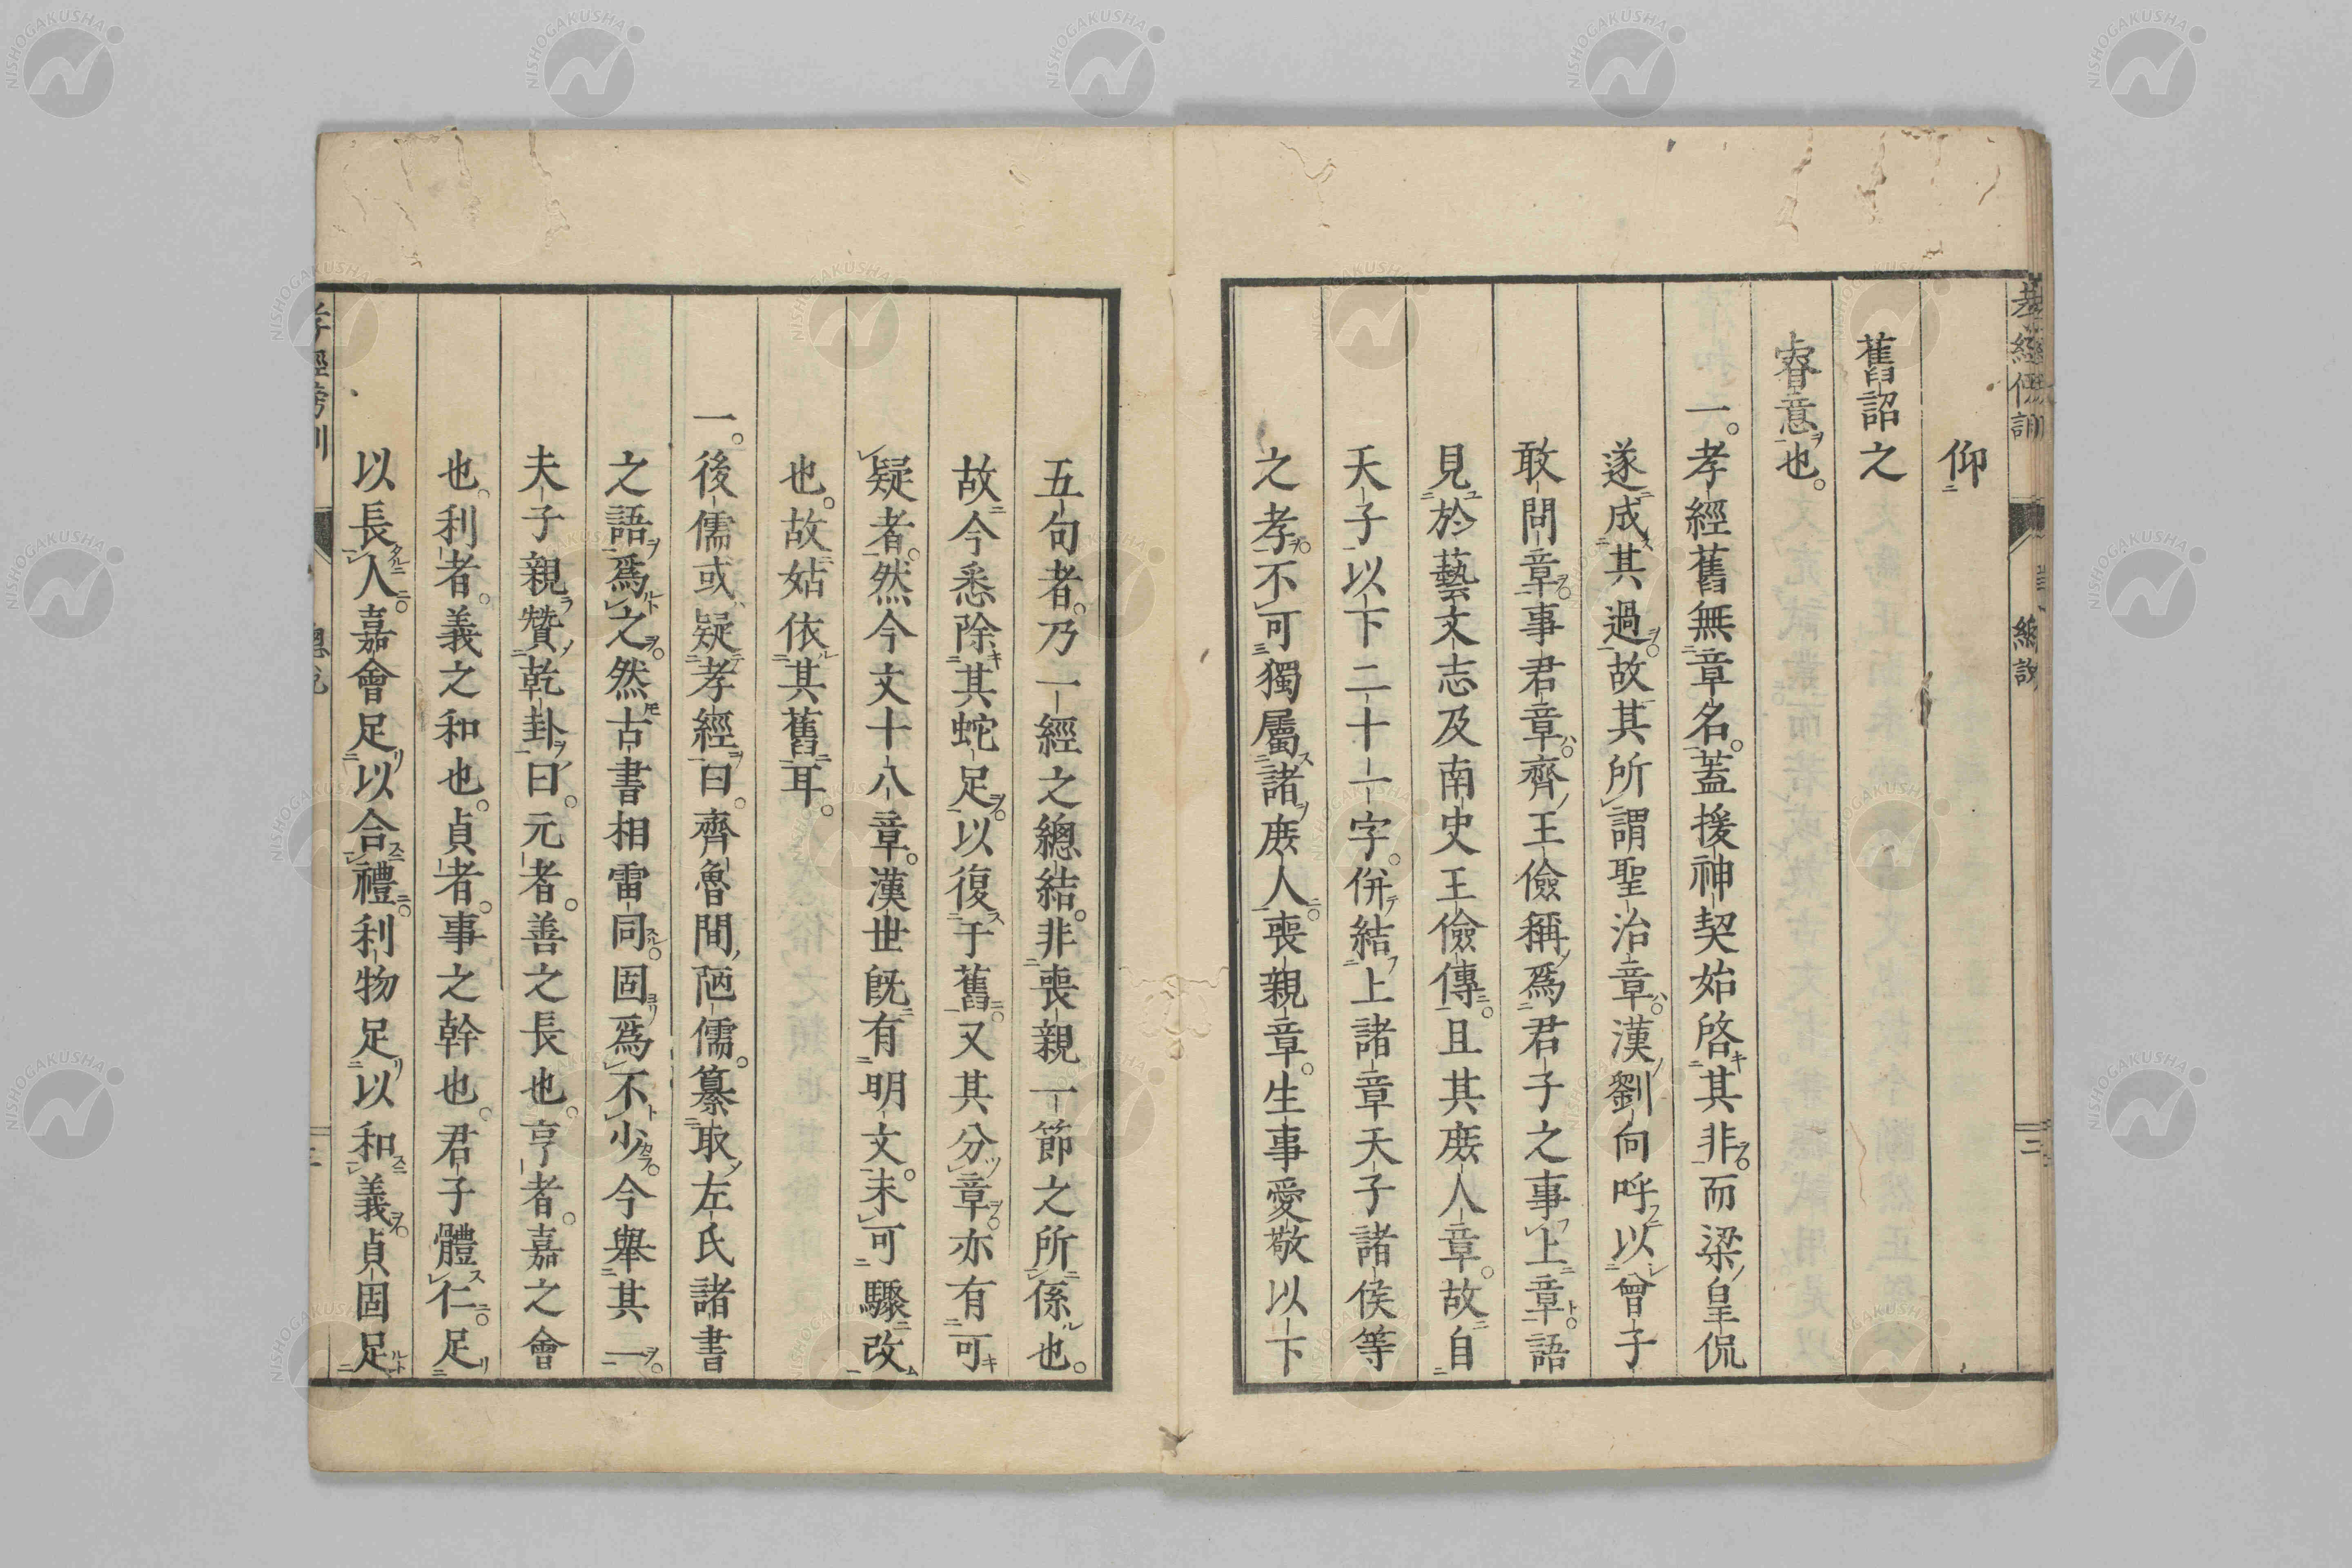 孝經傍訓
總說
二
仰
舊詔之
睿意也。
一。孝經舊無章名。蓋援神契始啓其非。而梁皇侃
遂成其過。故其所謂聖治章。漢劉向呼以曾子
敢問章。事君章。齊王儉稱爲君子之事上章。語
見於藝文志及南史王儉傳。且其庶人章。故自
天子以下二十一字。併結上諸章天子諸侯等
之孝。不可獨屬諸庶人。喪親章。生事愛敬以下
五句者。乃一經之總結。非喪親一節之所係也。
故今悉除其蛇足。以復于舊。又其分章。亦有可
疑者。然今文十八章。漢世既有明文。未可驟改
也。故姑依其舊耳。
一。後儒或疑孝經曰。齊魯間陋儒。纂取左氏諸書
之語爲之。然古書相雷同。固爲不少。今舉其一。
夫子親贊乾卦曰。元者。善之長也。亨者。嘉之會
也。利者。義之和也。貞者。事之幹也。君子體仁。足
以長人。嘉會足以合禮。利物足以和義。貞固足
孝經傍訓
總說
NISHOGAKUSHA